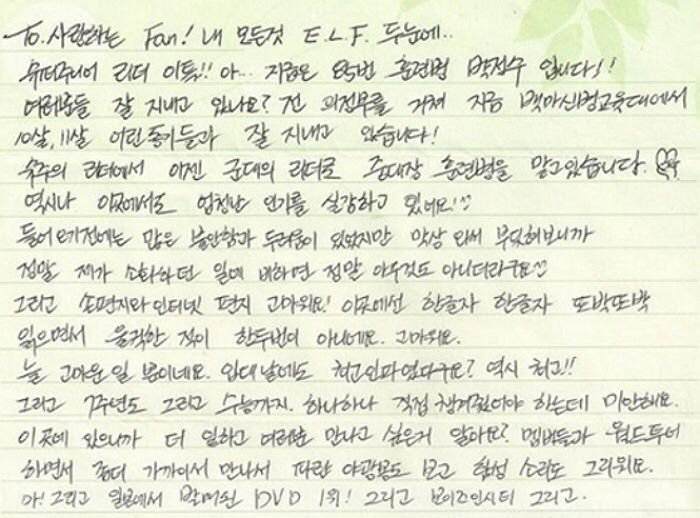 To. 사랑하는 Fan! 내 모든것 E.L.F. 두눈에..
슈퍼주니어 리더 이특!! 아... 지금은 85번 훈련병 박정수 입니다!!
여러분들 잘 지내고 있나요? 전 의정부를 거쳐 지금 백마신병교육대에서
10살, 11살 어린 동기들과 잘 지내고 있습니다!
슈주의 리더에서 이젠 군대의 리더로 중대장 훈련병을 맡고있습니다.
역시나 이곳에서도 엄청난 인기를 실감하고 있네요!
들어오기전에는 많은 불안함과 두려움이 있었지만 막상 와서 부딪혀보니까
정말 제가 소화하던 일에 비하면 정말 아무것도 아니더라구요
그리고 손편지와 인터넷 편지 고마워요! 이곳에선 한글자 한글자 또박또박
읽으면서 울컥한 적이 한두번이 아니네요. 고마워요.
늘 고마운일 뿐이네요. 입대날에도 최고인파였다구요? 역시 최고!!
그리고 7주년도 그리고 수능까지. 하나하나 직접 챙겨줬어야 하는데 미안해요.
이곳에 있으니까 더 일하고 여러분 만나고 싶은거 알아요? 멤버들과 월드투어
하면서 좀더 가까이서 만나서 파란 야광봉도 보고 함성 소리도 그리워요.
아! 그리고 일본에서 발매된 DVD 1위! 그리고 보이즈인시티 그리고.